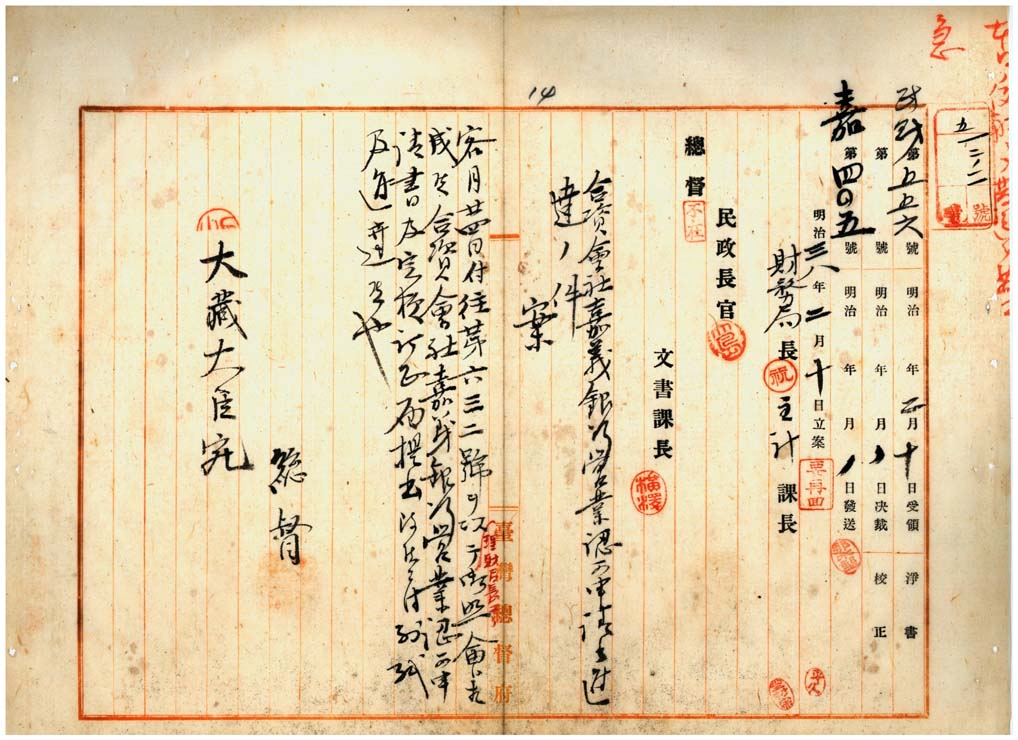 急
五、二、二
號
財第五五六號 明治 年二月十日受領 淨書
第 號 明治 年 月 日決裁 校正
嘉第四〇五號 明治 年 月 日發送
明治三八年二月十日立案
財務局長 主計課長
文書課長
民政長官
總督
不在
合資會社嘉義銀行營業認可申請書進
達ノ件
案
14
客月廿四日付往第六三二號ヲ以テ御照會相
理財局長ヨリ
成候合資會社嘉義銀行營業認可申
請書及定款訂正
及進達候也
總督
大藏大臣宛
臺灣總督府